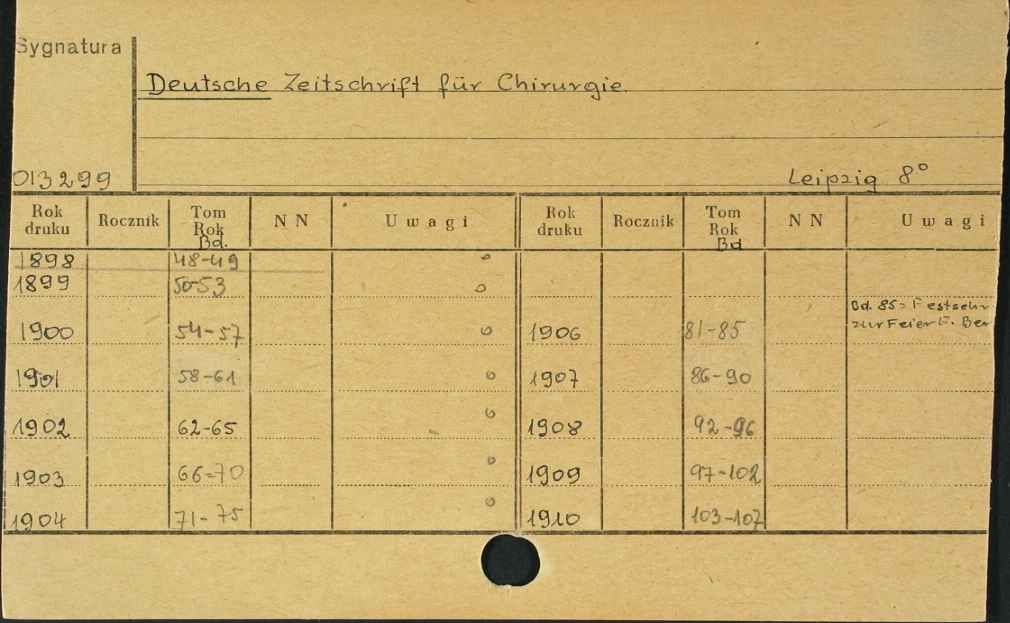 Sygnatura
Deutsche Zeitschrift für Chirurgie
013299
Leipzig 8°
Rok druku Rocznik Tom Rok Bd. NN Uwagi Rok druku Rocznik Tom Rok Bd NN Uwagi
1898 48-49
1899 50-53
Bd. 85 = Festschr
1900 54-57 1906 81-85 zur Feier E. Ber
1901 58-61 1907 86-90
1902 62-65 1908 92-96
1903 66-70 1909 97-102
1904 71-75 1910 103-107